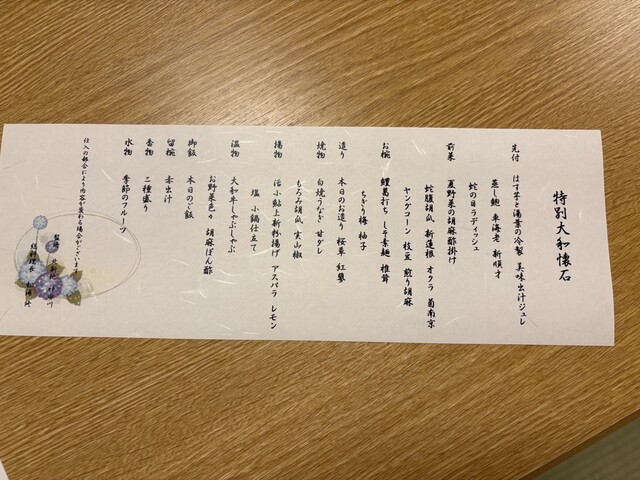 特別大和懐石
先付 はす芋と湯葉の冷製 美味出汁ジュレ
蒸し鮑 車海老 新順才
蛇の目ラディッシュ
前菜 夏野菜の胡麻酢掛け
蛇腹胡瓜 新蓮根 オクラ 菊南京
ヤングコーン 枝豆 煎り胡麻
お椀 鱧葛打ち しそ素麺 椎茸
ちぎり梅 柚子
造り 本日のお造り 桜草 紅蓼
焼物 白焼うなぎ 甘ダレ
もろみ胡瓜 実山椒
揚物 活小鮎上新粉揚げ アスパラ レモン
塩 小鍋仕立て
温物 大和牛しゃぶしゃぶ
お野菜色々 胡麻ぽん酢
御飯 本日のご飯
留椀 赤出汁
香物 二種盛り
水物 季節のフルーツ
仕入の都合により内容が変わる場合がございます